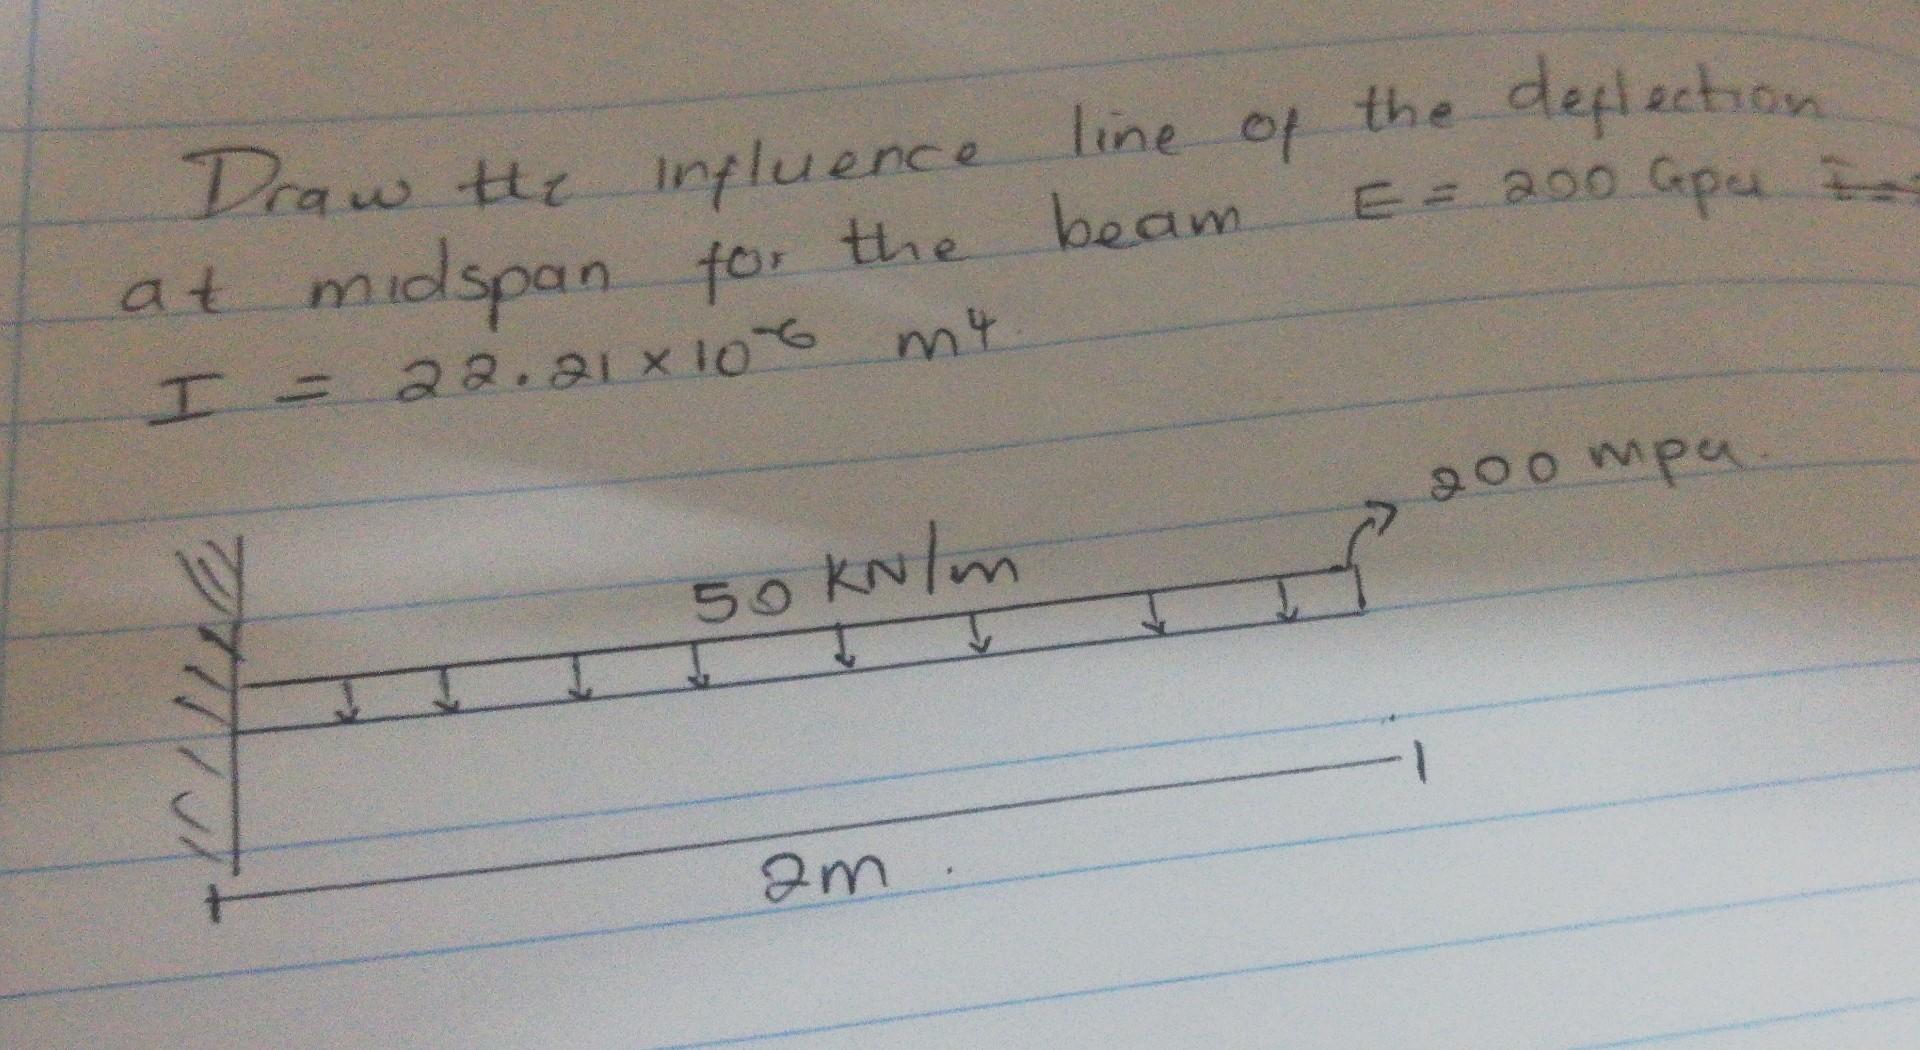 Draw the influence line of the deflection
at midspan for the beam E = 200 Gpa
I = 22.21 x 10-6 m4
200 mpa.
50 KN/m
2m.